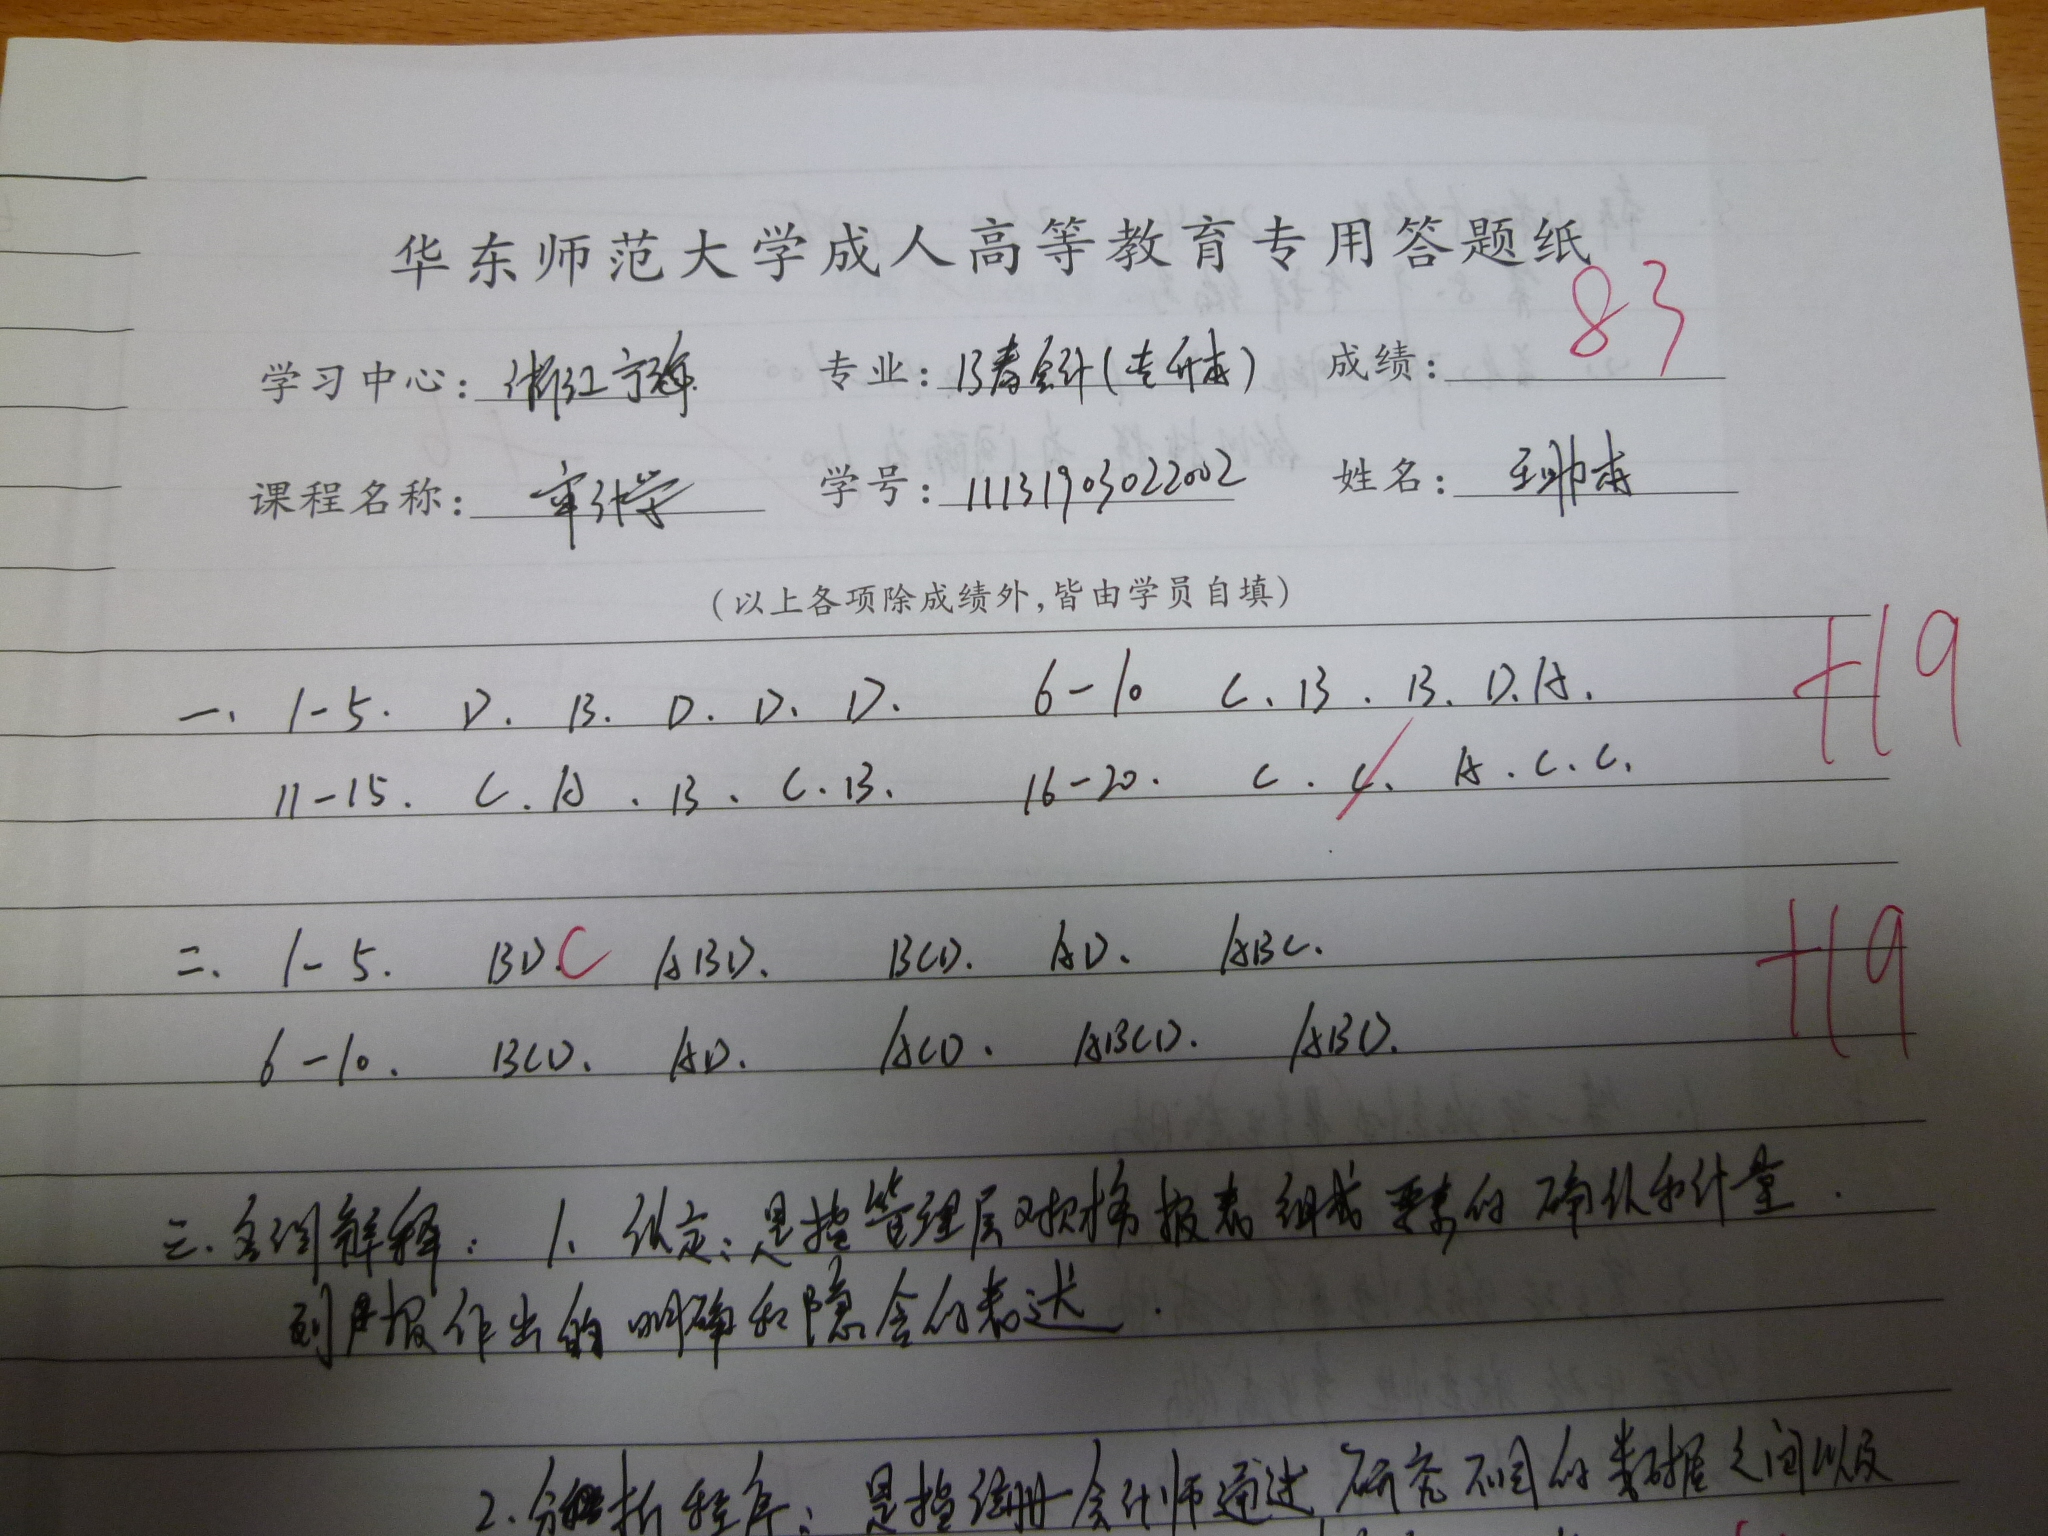 华东师范大学成人高等教育专用答题纸
学习中心: 浙江宁海 专业: 13春会计(专升本) 成绩: 83
课程名称: 审计学 学号: 11131903022002 姓名: 王帅
(以上各项除成绩外,皆由学员自填)
一、 1-5. D. B. D. D. D. 6-10 C. B. B. D. A. +19
11-15. C. A. B. C. B. 16-20. C. C. A. C. C.
二、 1-5. BD.C ABD. BCD. AD. ABC. +19
6-10. BCD. AD. ACD. ABCD. ABD.
三、名词解释: 1、认定:是指管理层对财务报表组成要素的确认和计量
列报作出的明确和隐含的表述.
2.分析程序:是指注册会计师通过研究不同的数据之间以及